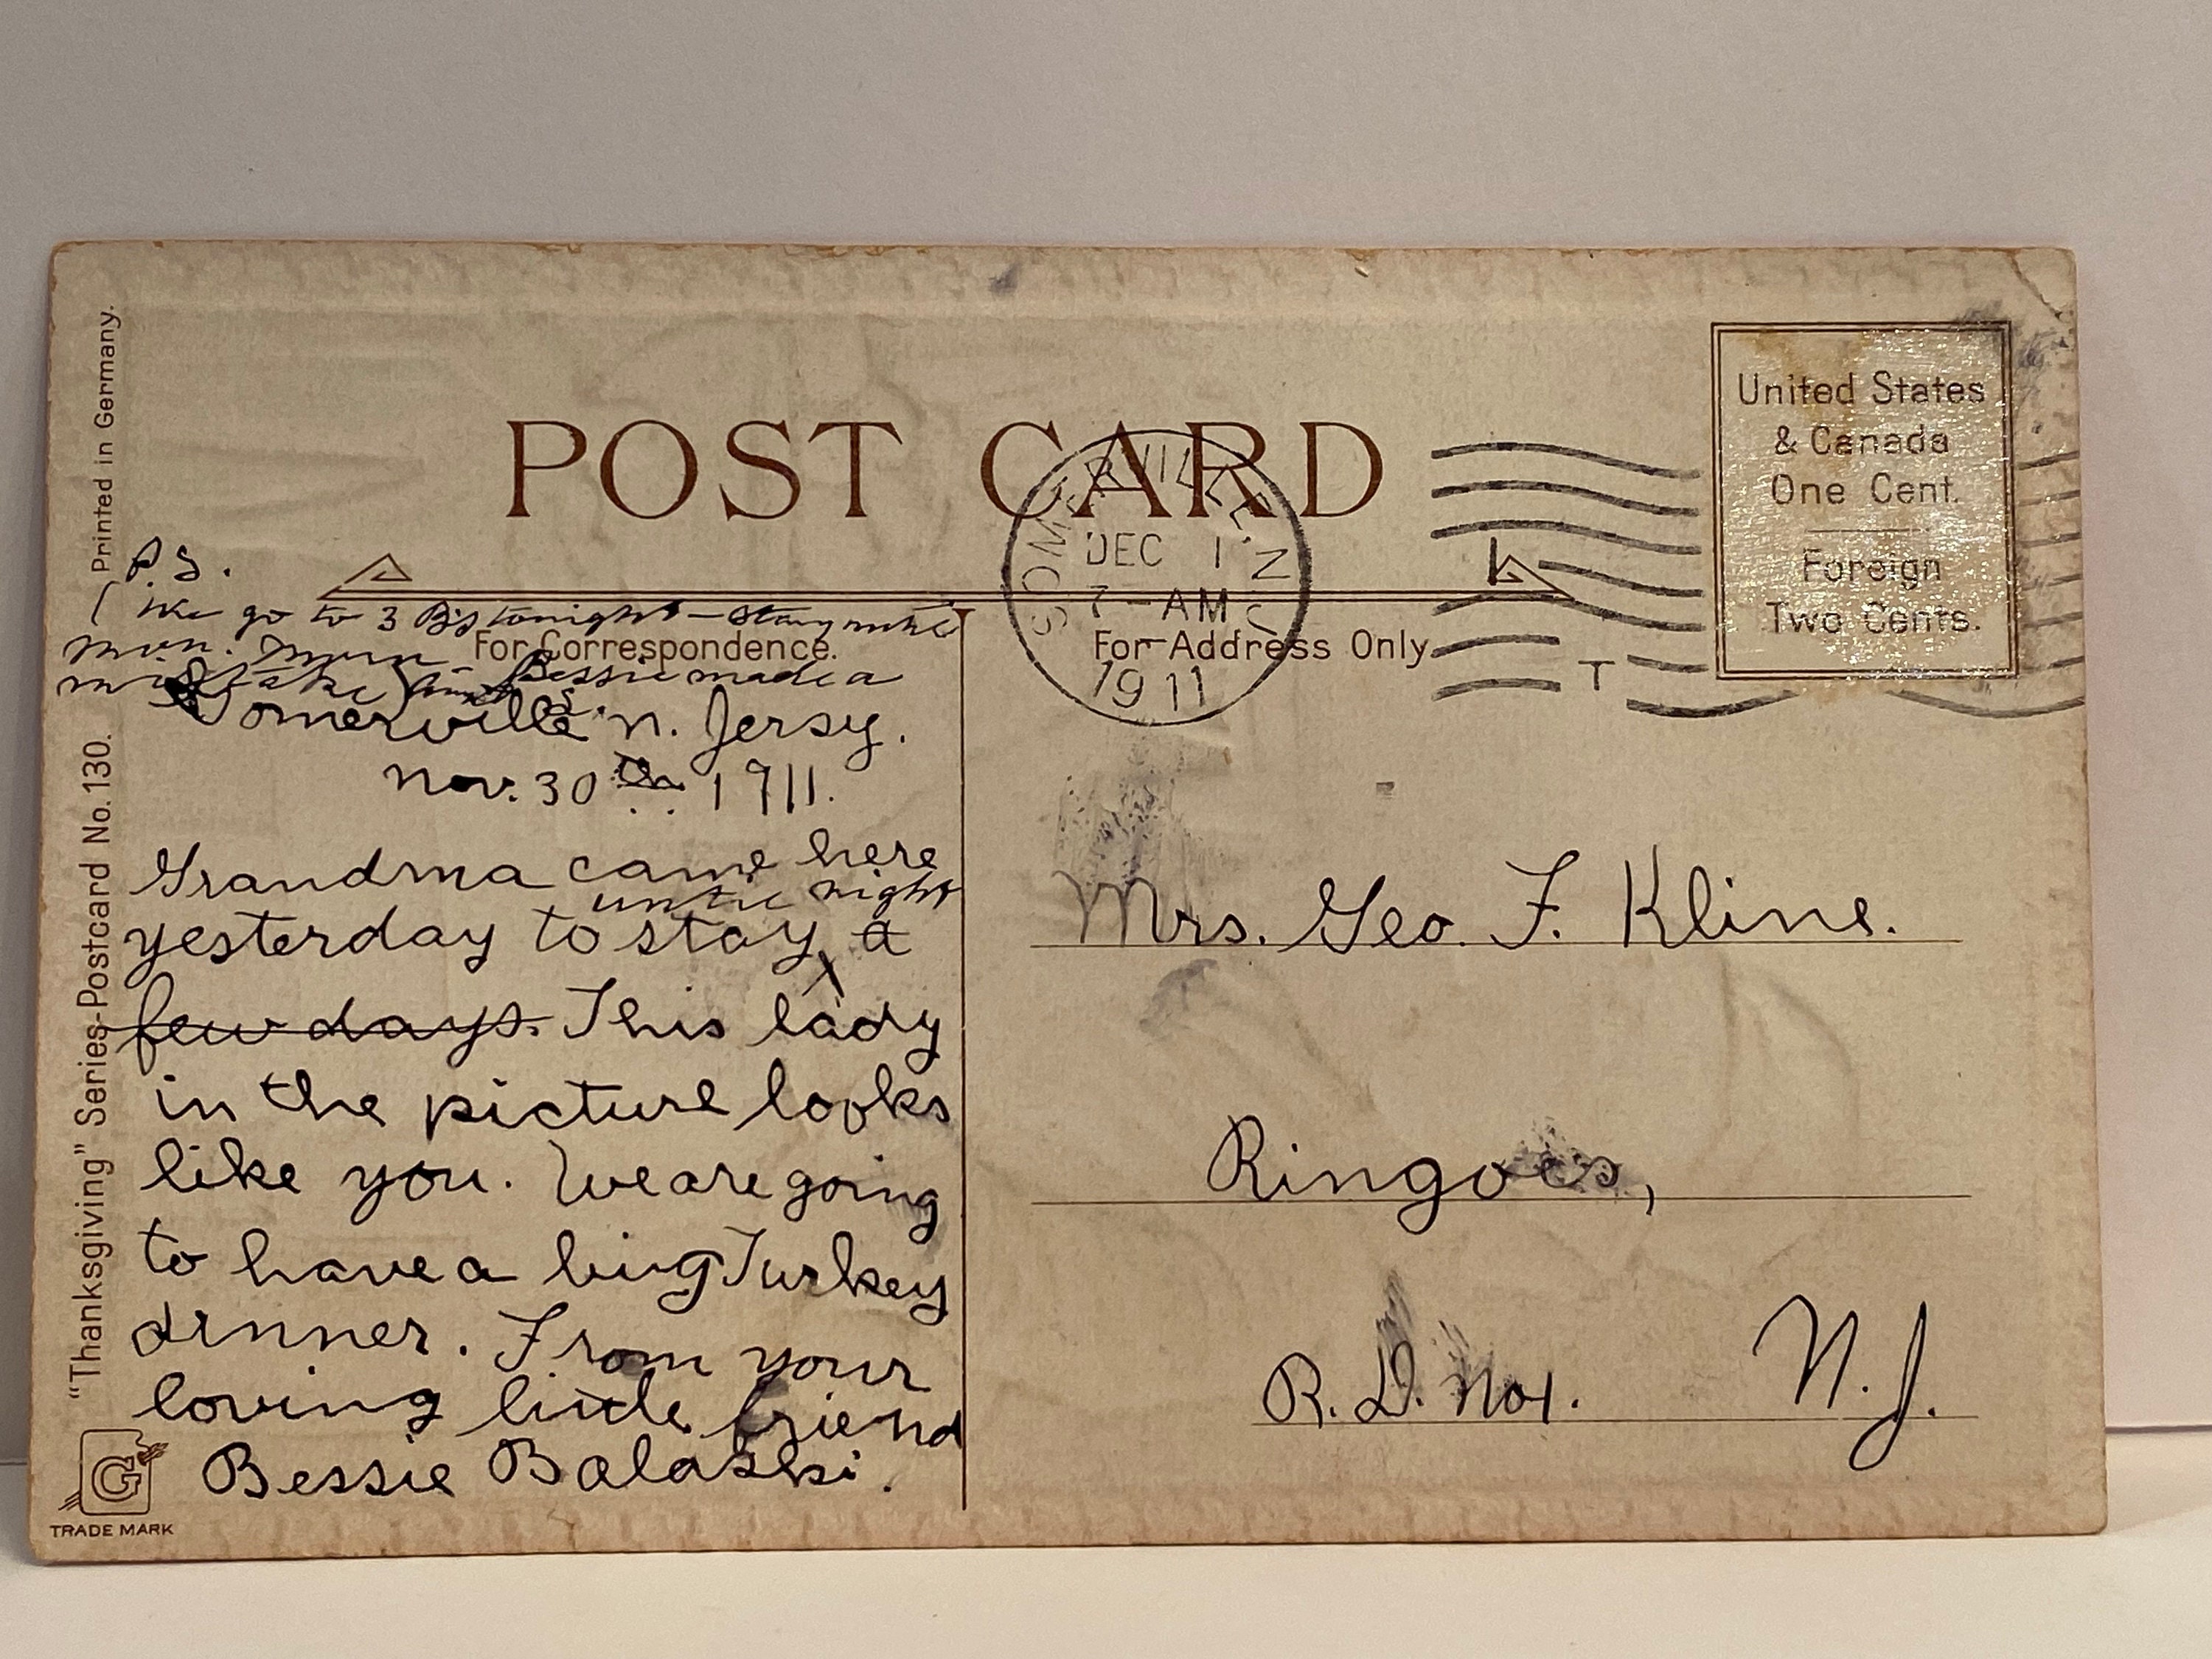 POST CARD
United States
& Canada
One Cent.
Foreign
Two Cents.
SOMERVILLE, N.J.
DEC 1
7-AM
1911
T
For Correspondence.
For Address Only.
Printed in Germany.
"Thanksgiving" Series-Postcard No. 130.
G
TRADE MARK
P.S.
(We go to 3 B'js tonight - Stay
mon. Bessie made a
mistake)
Somerville N. Jersy.
Nov. 30th 1911.
Grandma came here
until night
yesterday to stay a
few days. This lady
in the picture looks
like you. We are going
to have a big Turkey
dinner. From your
loving little friend
Bessie Balaski.
Mrs. Geo. F. Kline.
Ringoes,
R.D. No 1. N.J.